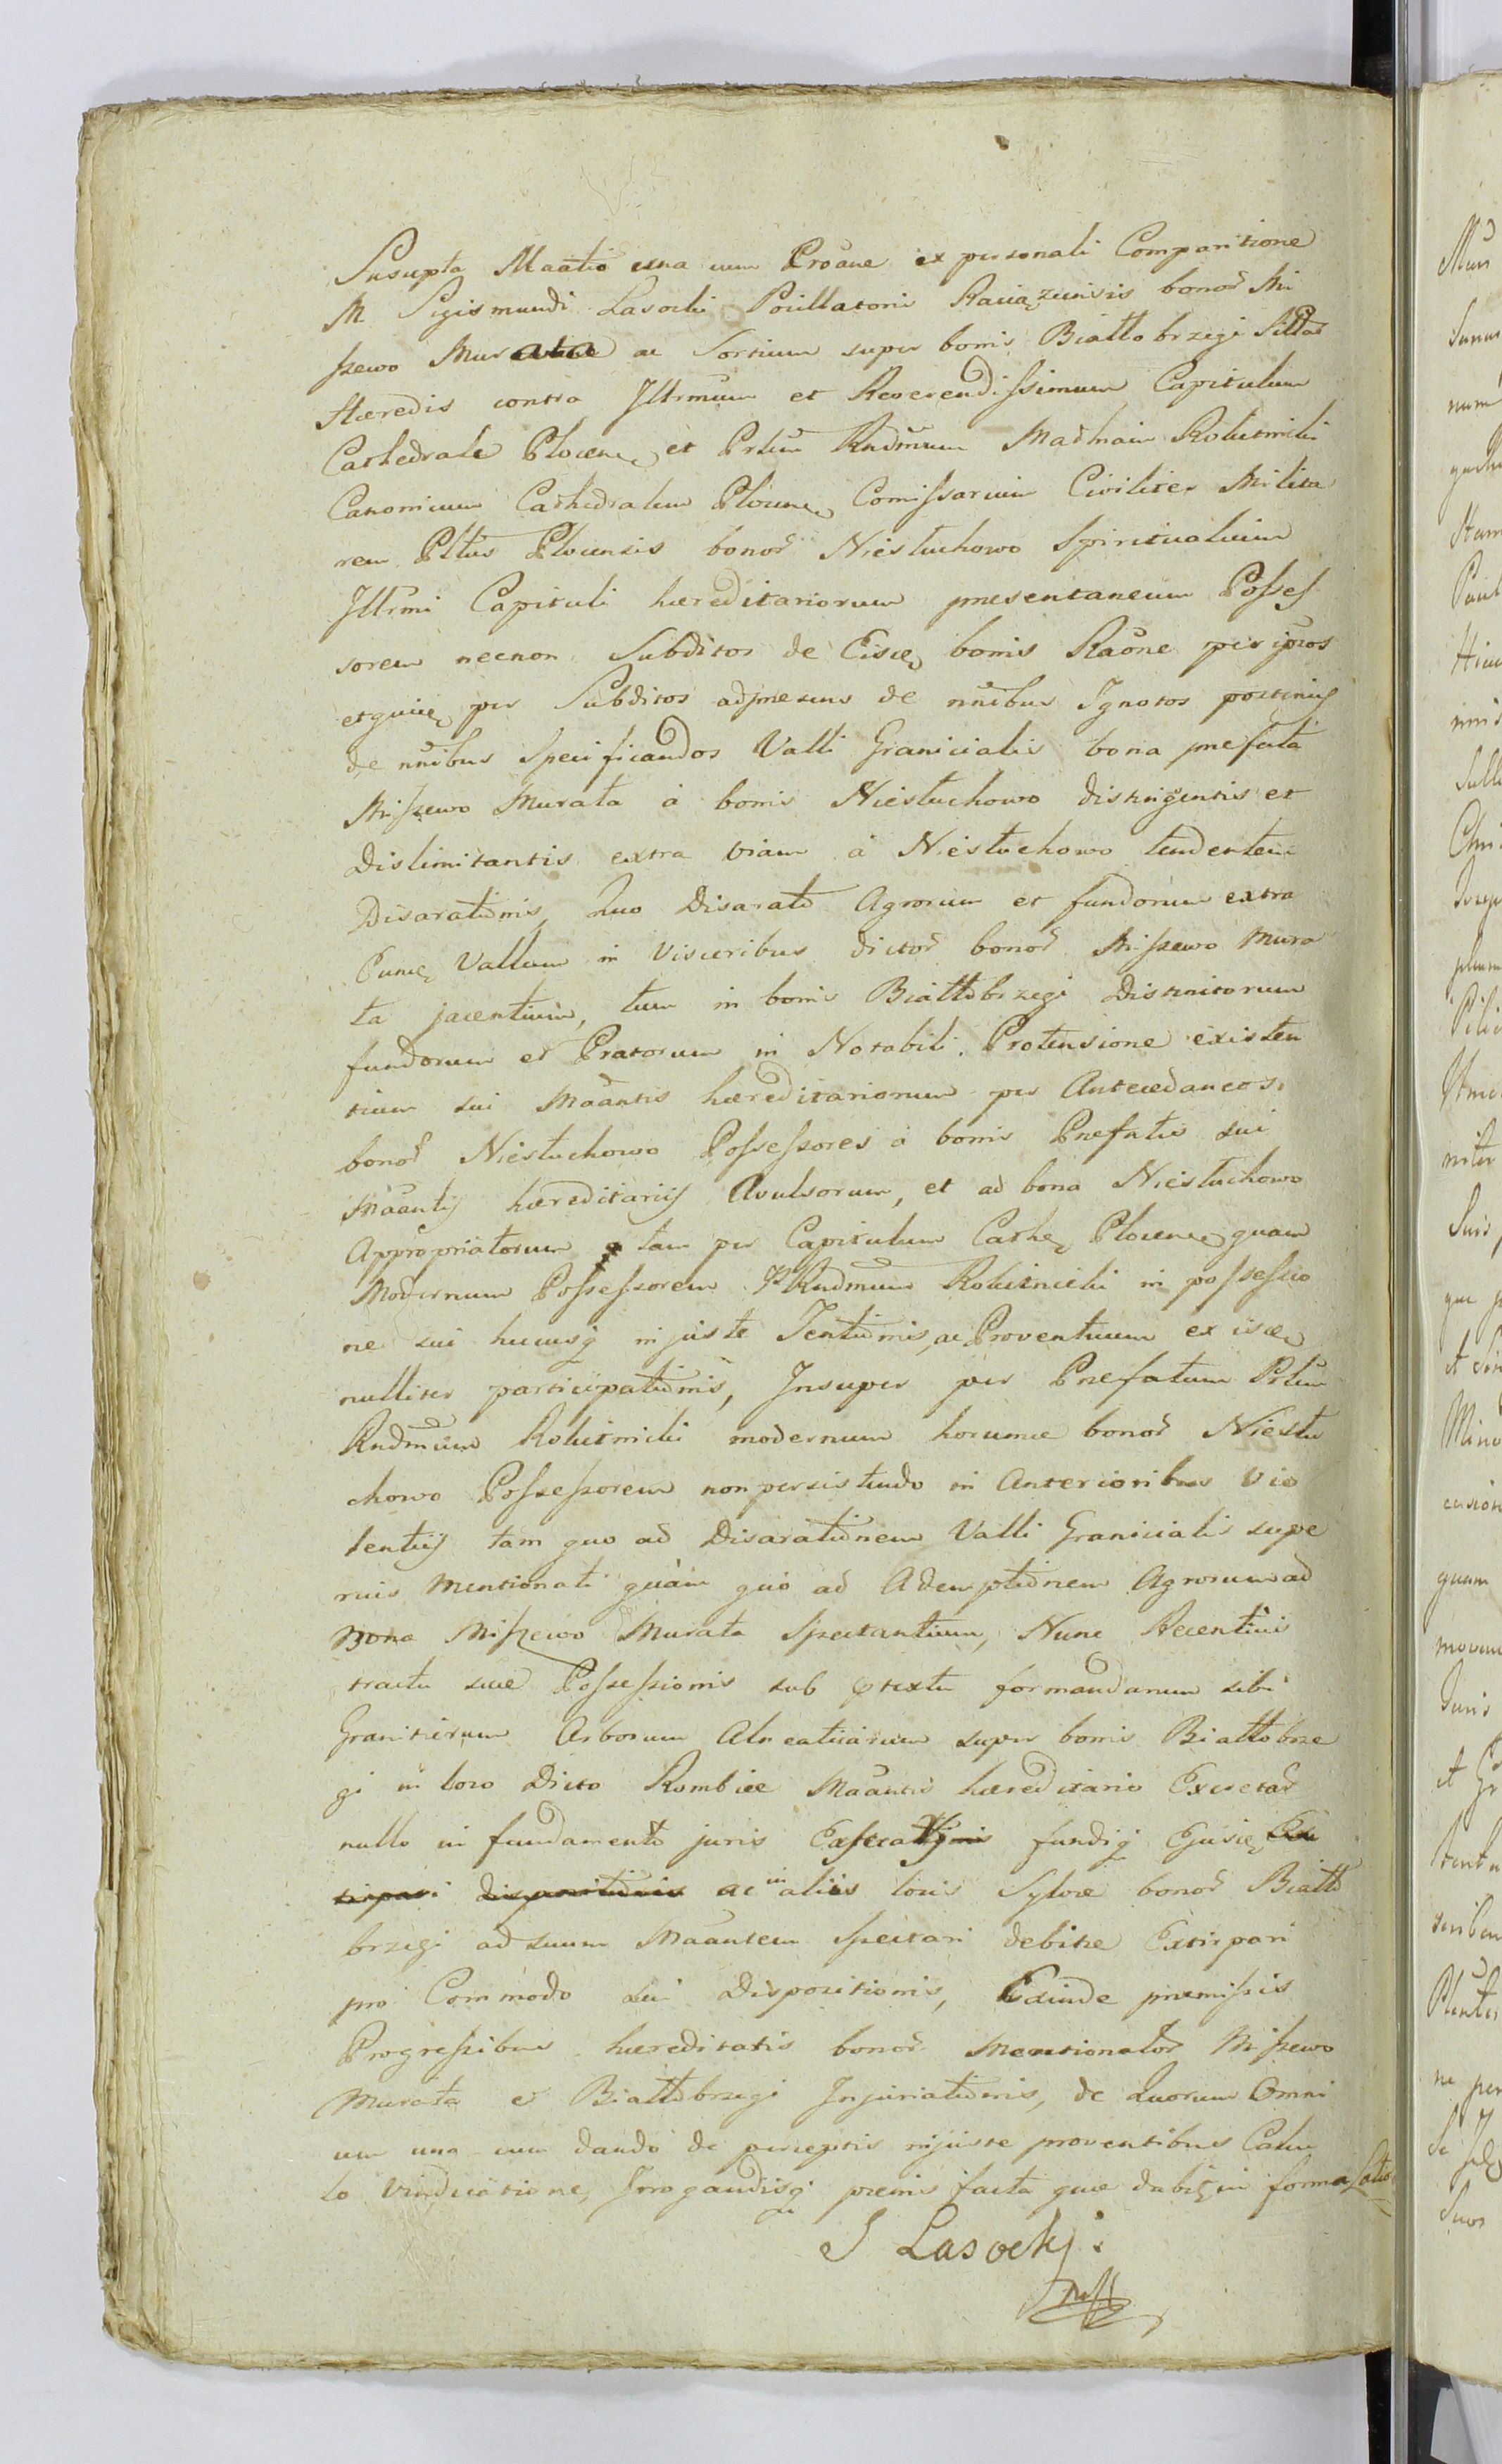 Suscepta Maãtio una cum Proãne ex personali Comparitione
M Sigismundi Lasocki Pocillatoris Raciązensis bonor̃ Mi
szewo Murata ac Sortium super bonis Białłobrzegi Sittar̃
Hæredis contra Illrmum et Reverendissimum Capitulum
Cathedrale Plocen, et Prlm Rndm̃um Mathiam Rokitnicki
Canonicum Cathedralem Plocen, Comissarium Civiliter Milita
rem Pltũs Plocensis bonor̃ Niesłuchowo Spiritualium
Illrm̃i Capituli hæreditariorum præsentaneum Posses
sorem necnon Subditos de Eisce, bonis Raõne per ipsos
et quice, per Subditos adpræsens de nñibus Ignotos postmis
de nñibus Specificandos Valli Granicialis bona præfata
Miszewo Murata à bonis Niesłuchowo distingentis et
Dislimitantis extra viam à Niesłuchowo tendentem
Disaratiõnis, Quo Disarato Agrorum et fundorum extra
Eunce, Vallum in Visceribus dictor̃ bonor̃ Miszewo Mura
ta jacentium, tum in bonis Białłobrzegi Districtorum
fundorum et Pratorum in Notabili Protensione existen
tium sui Maãntis hæreditariorum per Antecedaneos
bonor̃ Niesłuchowo Possessores à bonis Præfatis sui
Maãntis hæreditariis Avulsorum, et ad bona Niesłuchowo
Appropriatorum tam per Capitulum Cathe, Plocene, quam
Modernum Possessorem Rndm̃um Rokitnicki in possessio
ne sui hucusq injuste Tentiõnis, ac Proventuum ex isce,
nulliter participatiõnis, Insuper per Præfatum Prlm
Rndm̃um Rokitnicki modernum horumce bonor̃ Niesłu
chowo Possessorem non persistendo in Anterioribus Vio
lentiis tam quo ad Disaratiõnem Valli Granicialis supe
rius Mentionati quàm quò ad Ademptiõnem Agrorum ad
bona Miszewo Murata Spectantium, Nunc Recentius
tractu suæ Possessionis sub prætextu formandarum sibi
Granitierum Arborum Alneatiarum super bonis Białłobrze
gi in loco Dicto Rombice Maãntis hæreditario Exsectar̃
nullo in fundamento juris fundiq Ejusce,
ac in aliis locis Sylvæ bonor̃ Białło
brzegi ad suum Maãntem Spectari debitæ Extirpari
pro Commodo sui Dispositionis, Exinde præmissis
Progressibus hæreditatis bonor̃ Mentionator̃ Miszewo
Murata et Białłobrzegi Injuriatiõnis, de Quorum Omni
um una cum dando de perceptis injuste proventibus Calcu
lo Vindicatione, Irrogandisq pænis facta quæ dabit, in forma Latio
S Lasocki